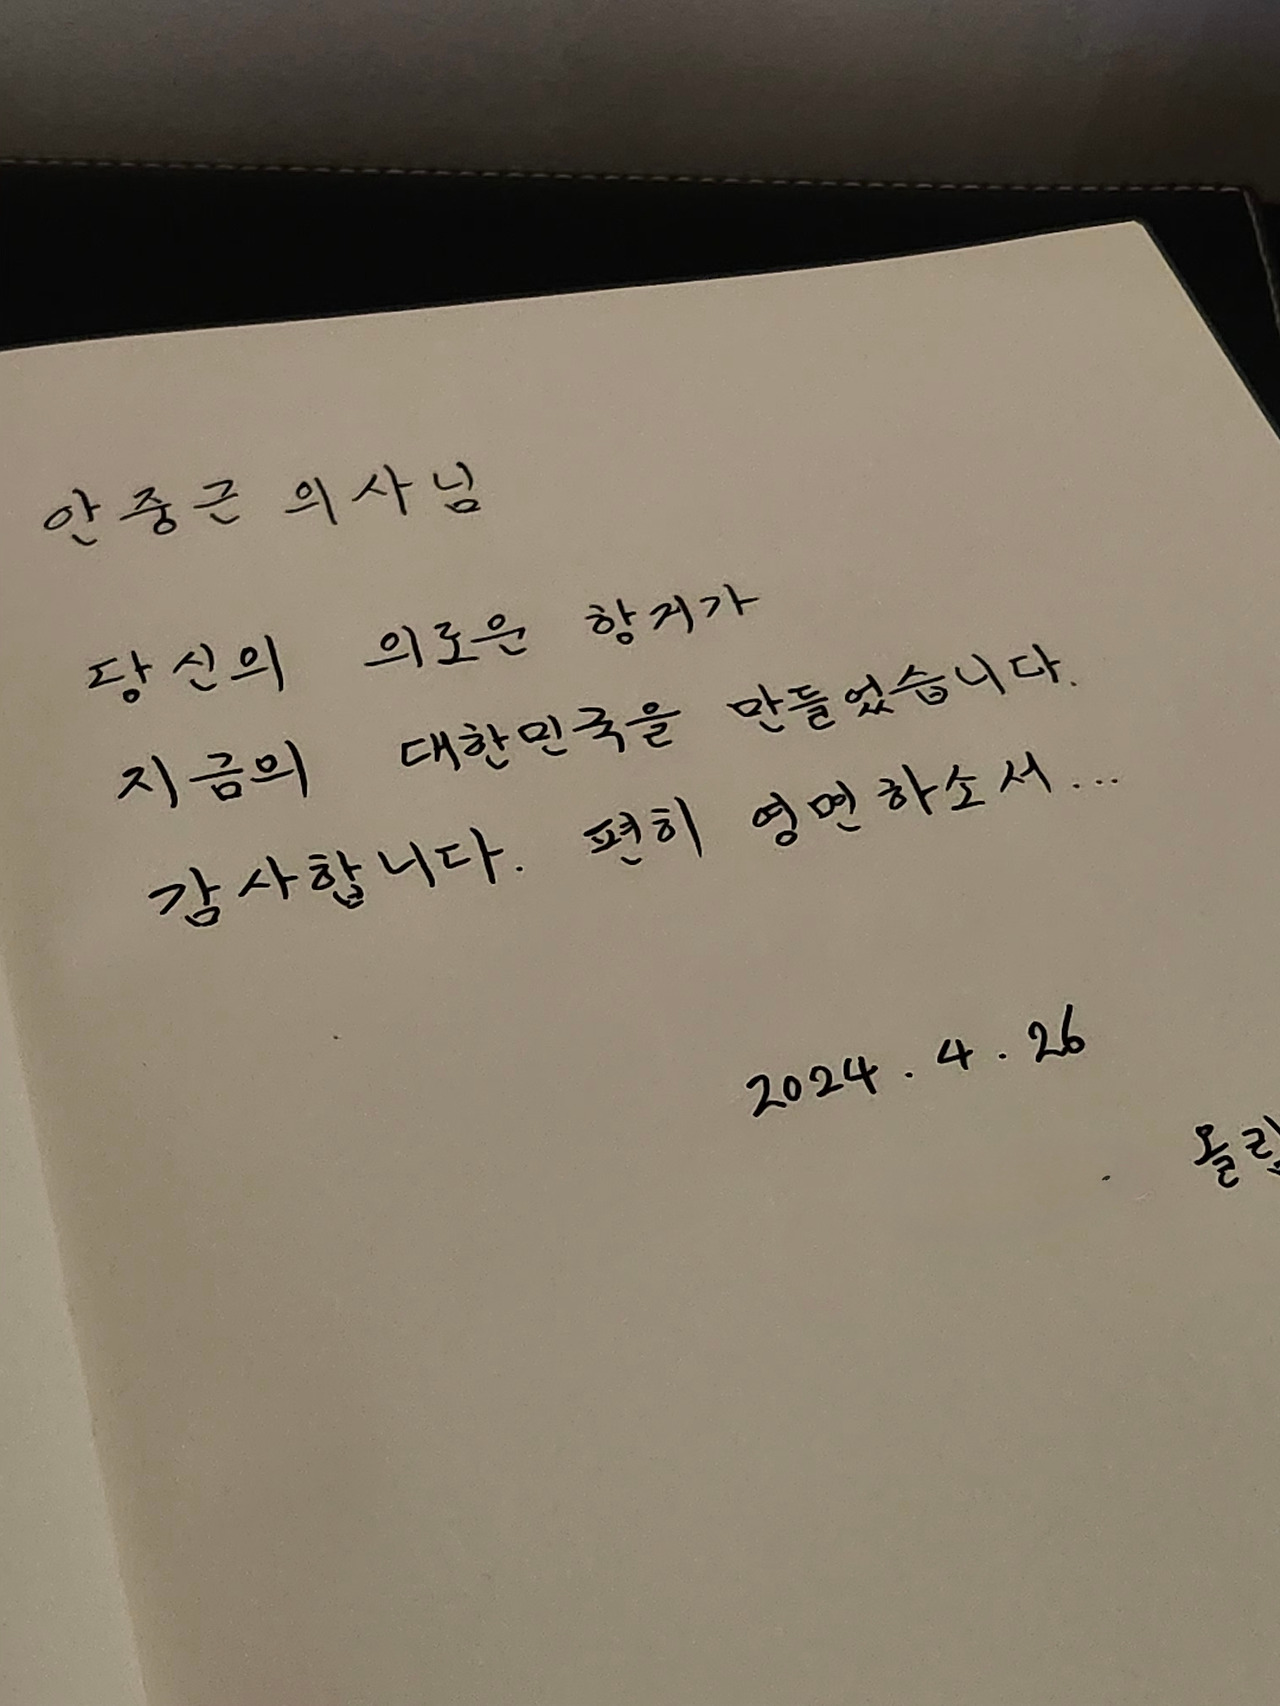 안중근 의사님
당신의 의로운 항거가
지금의 대한민국을 만들었습니다.
감사합니다. 편히 영면하소서...
2024. 4. 26